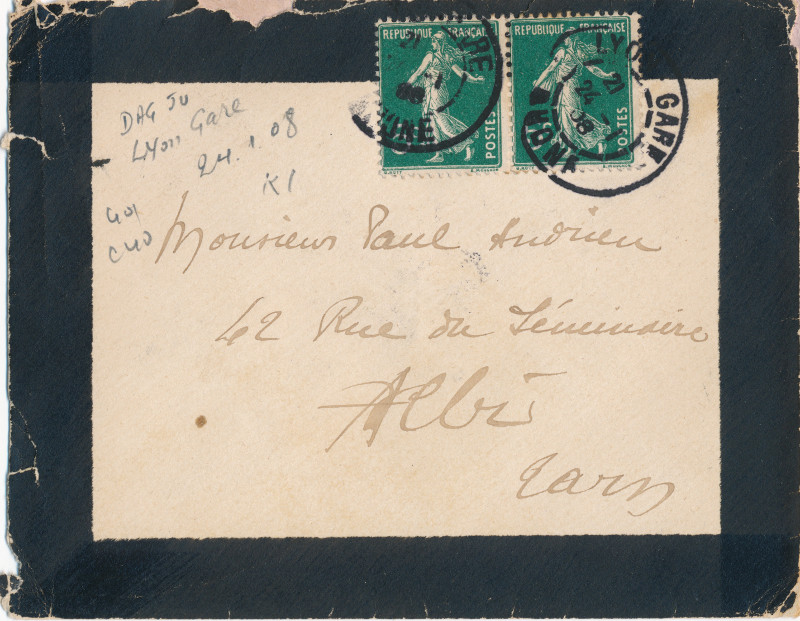 REPUBLIQUE FRANÇAISE
POSTES
REPUBLIQUE FRANÇAISE
POSTES
LYON GARE
21
24 - 1
08
DAG JU
Lyon Gare
24.1.08
K1
Monsieur Paul Andrieu
42 Rue du Séminaire
Albi
Tarn